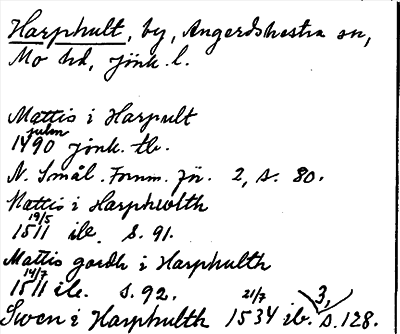 Harphult, by, Angerdshestra sn,
Mo hd, Jönk. l.
Mattis i Harpult
julen
1490 jönk. tb.
N. Smål. Fornm. för. 2, s. 80.
Mattis i Harphwlth
19/5
1511 ib. s. 91.
Mattis gordh i Harphulth
14/7
1511 ib. s. 92.
21/7 3,
Swen i Harphulth 1534 ib. s. 128.